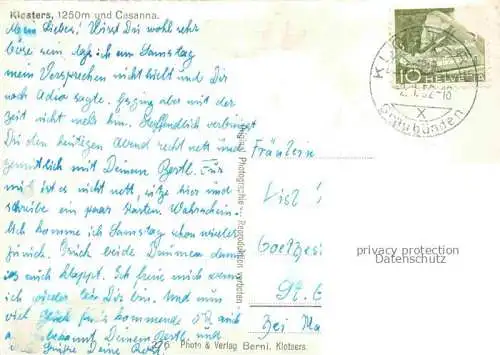 Klosters, 1250m und Casanna.
Mein Lieber! Wirst Du wohl sehr
böse sein, daß ich am Samstag
mein Versprechen nicht hielt und Dir
noch Adio sagte. Es ging aber mit der
Zeit nicht mehr hin. Hoffentlich verbringst
Du den heutigen Abend recht nett und
gemütlich mit Deinem Bertl. Für
mich ist es nicht nett, sitze hier und
schreibe ein paar Karten. Wahrschein-
lich komme ich Samstag schon wieder
Zürich. Drück beide Daumen damit
es auch klappt. Ich freue mich wenn
ich wieder bei Dir bin. Und nun
viel Glück für's kommende
Deinem Bertl. und
Deine
HELVETIA
10
KLOSTERS
2.1.52-18
X
Graubünden
Original Photographie - Reproduktion verboten
Fräulein
Lisl
Goethe
St. G
Bei Ma
privacy protection
Datenschutz
296 Photo & Verlag Bernl. Klosters.